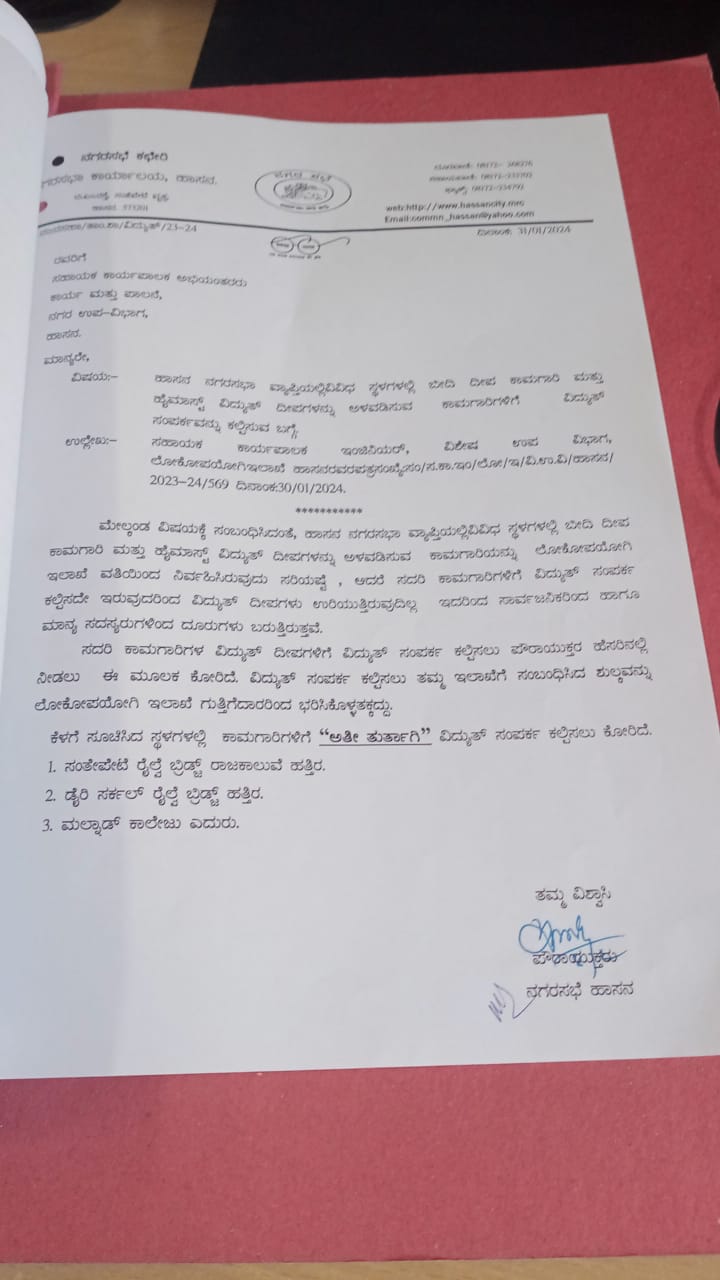 ನಗರಸಭೆ ಕಛೇರಿ
ನಗರಸಭಾ ಕಾರ್ಯಾಲಯ, ಹಾಸನ.
ನಗರ ಸಭೆ
web:http://www.hassancity.mrc
Email:commn_hassan@yahoo.com
/ವಿದ್ಯುತ್/23-24
ದಿನಾಂಕ: 31/01/2024
ರವರಿಗೆ
ಸಹಾಯಕ ಕಾರ್ಯಪಾಲಕ ಅಭಿಯಂತರರು
ಕಾರ್ಯ ಮತ್ತು ಪಾಲನೆ,
ನಗರ ಉಪ-ವಿಭಾಗ,
ಹಾಸನ.
ಮಾನ್ಯರೇ,
ವಿಷಯ:- ಹಾಸನ ನಗರಸಭಾ ವ್ಯಾಪ್ತಿಯಲ್ಲಿವಿವಿಧ ಸ್ಥಳಗಳಲ್ಲಿ ಬೀದಿ ದೀಪ ಕಾಮಗಾರಿ ಮತ್ತು
ಹೈಮಾಸ್ಟ್ ವಿದ್ಯುತ್ ದೀಪಗಳನ್ನು ಅಳವಡಿಸುವ ಕಾಮಗಾರಿಗಳಿಗೆ ವಿದ್ಯುತ್
ಸಂಪರ್ಕವನ್ನು ಕಲ್ಪಿಸುವ ಬಗ್ಗೆ.
ಉಲ್ಲೇಖ:- ಸಹಾಯಕ ಕಾರ್ಯಪಾಲಕ ಇಂಜಿನಿಯರ್, ವಿಶೇಷ ಉಪ ವಿಭಾಗ,
ಲೋಕೋಪಯೋಗಿಇಲಾಖೆ ಹಾಸನರವರಪತ್ರಸಂಖ್ಯೆ:ಸಂ/ಸ.ಕಾ.ಇಂ/ಲೋ/ಇ/ವಿ.ಉ.ವಿ/ಹಾಸನ/
2023-24/569 ದಿನಾಂಕ:30/01/2024.
***********
ಮೇಲ್ಕಂಡ ವಿಷಯಕ್ಕೆ ಸಂಬಂಧಿಸಿದಂತೆ, ಹಾಸನ ನಗರಸಭಾ ವ್ಯಾಪ್ತಿಯಲ್ಲಿವಿವಿಧ ಸ್ಥಳಗಳಲ್ಲಿ ಬೀದಿ ದೀಪ
ಕಾಮಗಾರಿ ಮತ್ತು ಹೈಮಾಸ್ಟ್ ವಿದ್ಯುತ್ ದೀಪಗಳನ್ನು ಅಳವಡಿಸುವ ಕಾಮಗಾರಿಯನ್ನು ಲೋಕೋಪಯೋಗಿ
ಇಲಾಖೆ ವತಿಯಿಂದ ನಿರ್ವಹಿಸಿರುವುದು ಸರಿಯಷ್ಟೆ , ಆದರೆ ಸದರಿ ಕಾಮಗಾರಿಗಳಿಗೆ ವಿದ್ಯುತ್ ಸಂಪರ್ಕ
ಕಲ್ಪಿಸದೇ ಇರುವುದರಿಂದ ವಿದ್ಯುತ್ ದೀಪಗಳು ಉರಿಯುತ್ತಿರುವುದಿಲ್ಲ ಇದರಿಂದ ಸಾರ್ವಜನಿಕರಿಂದ ಹಾಗೂ
ಮಾನ್ಯ ಸದಸ್ಯರುಗಳಿಂದ ದೂರುಗಳು ಬರುತ್ತಿರುತ್ತವೆ.
ಸದರಿ ಕಾಮಗಾರಿಗಳ ವಿದ್ಯುತ್ ದೀಪಗಳಿಗೆ ವಿದ್ಯುತ್ ಸಂಪರ್ಕ ಕಲ್ಪಿಸಲು ಪೌರಾಯುಕ್ತರ ಹೆಸರಿನಲ್ಲಿ
ನೀಡಲು ಈ ಮೂಲಕ ಕೋರಿದೆ. ವಿದ್ಯುತ್ ಸಂಪರ್ಕ ಕಲ್ಪಿಸಲು ತಮ್ಮ ಇಲಾಖೆಗೆ ಸಂಬಂಧಿಸಿದ ಶುಲ್ಕವನ್ನು
ಲೋಕೋಪಯೋಗಿ ಇಲಾಖೆ ಗುತ್ತಿಗೆದಾರರಿಂದ ಭರಿಸಿಕೊಳ್ಳತಕ್ಕದ್ದು.
ಕೆಳಗೆ ಸೂಚಿಸಿದ ಸ್ಥಳಗಳಲ್ಲಿ ಕಾಮಗಾರಿಗಳಿಗೆ "ಅತೀ ತುರ್ತಾಗಿ" ವಿದ್ಯುತ್ ಸಂಪರ್ಕ ಕಲ್ಪಿಸಲು ಕೋರಿದೆ.
1. ಸಂತೇಪೇಟೆ ರೈಲ್ವೆ ಬ್ರಿಡ್ಜ್ ರಾಜಕಾಲುವೆ ಹತ್ತಿರ.
2. ಡೈರಿ ಸರ್ಕಲ್ ರೈಲ್ವೆ ಬ್ರಿಡ್ಜ್ ಹತ್ತಿರ.
3. ಮಲ್ನಾಡ್ ಕಾಲೇಜು ಎದುರು.
ತಮ್ಮ ವಿಶ್ವಾಸಿ
ಪೌರಾಯುಕ್ತರು
ನಗರಸಭೆ ಹಾಸನ